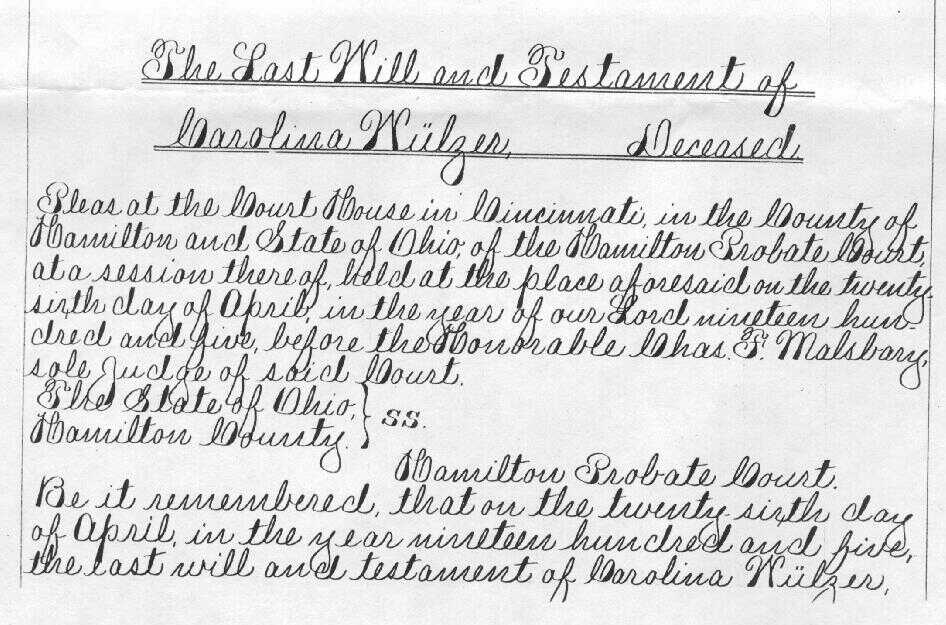 The Last Will and Testament of
Carolina Wülzer, Deceased
Pleas at the Court House in Cincinnati, in the County of
Hamilton and State of Ohio, of the Hamilton Probate Court,
at a session thereof, held at the place aforesaid on the twenty-
sixth day of April, in the year of our Lord nineteen hun-
dred and five, before the Honorable Chas. T. Malsbary,
sole Judge of said Court.
The State of Ohio, } ss.
Hamilton County.
Hamilton Probate Court.
Be it remembered, that on the twenty sixth day
of April, in the year nineteen hundred and five,
the last will and testament of Carolina Wülzer,